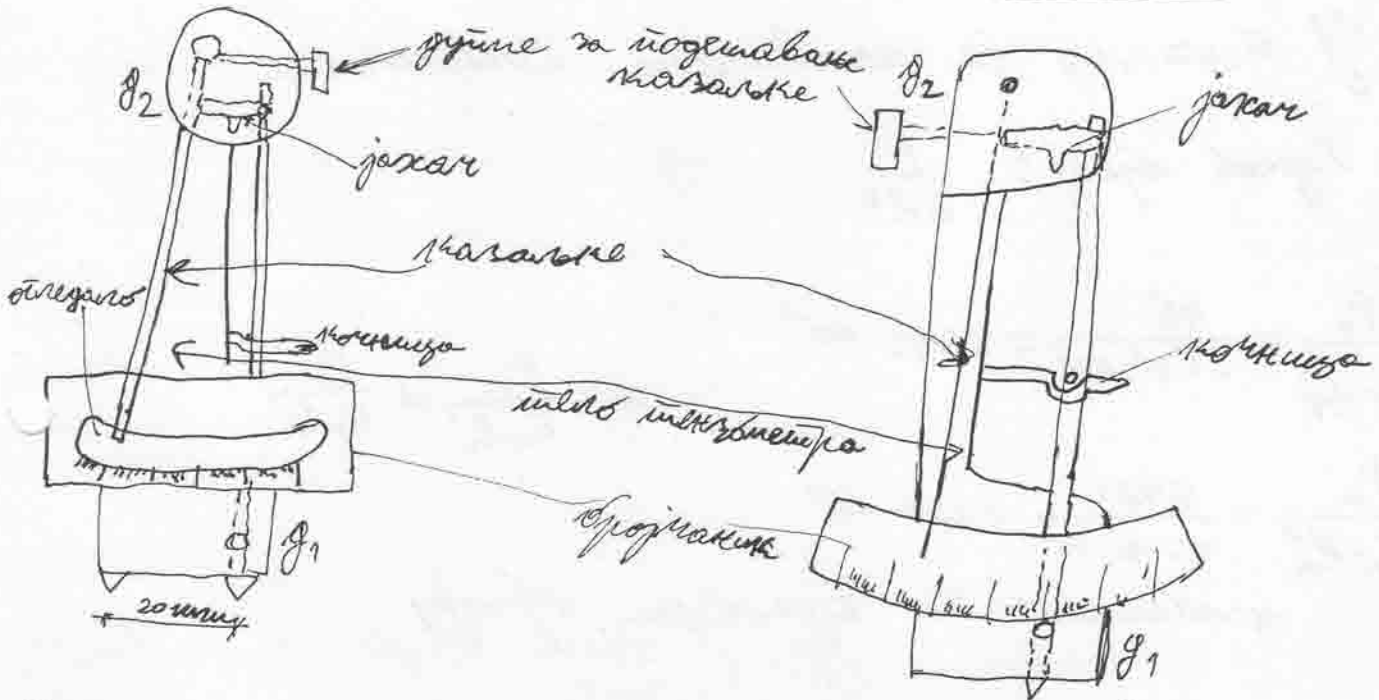 дугме за подешавање
казаљке
g2
g2
јахач
јахач
казаљке
огледало
кочница
кочница
тело тензометра
бројчаник
g1
g1
20 mm